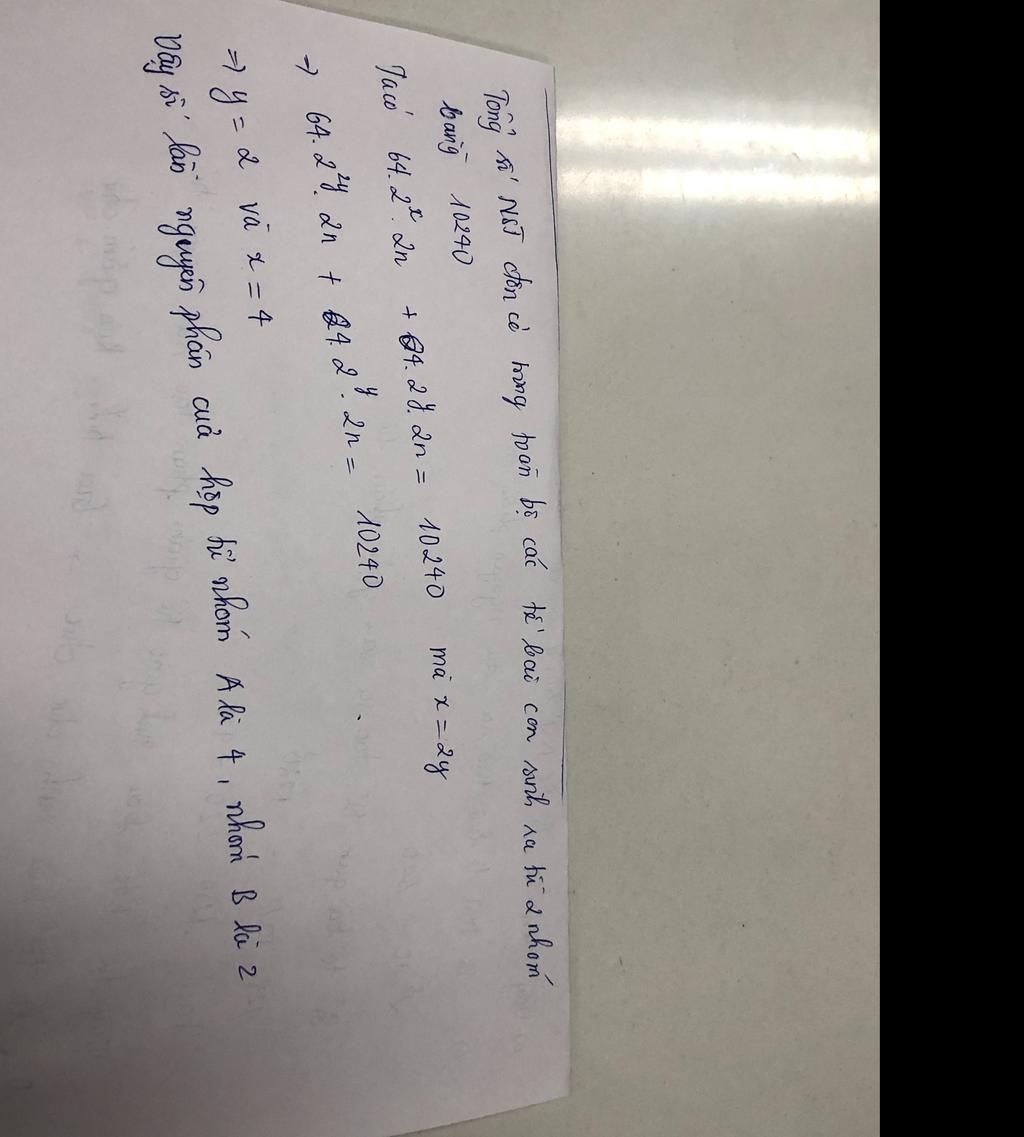 Tổng số NST đơn có trong toàn bộ các tế bào con sinh ra từ 2 nhóm
bằng 10240
Ta có 64.2^x.2n + 64.2^y.2n = 10240 mà x = 2y
→ 64.2^2y.2n + 64.2^y.2n = 10240
=> y = 2 và x = 4
Vậy số lần nguyên phân của hợp tử nhóm A là 4, nhóm B là 2